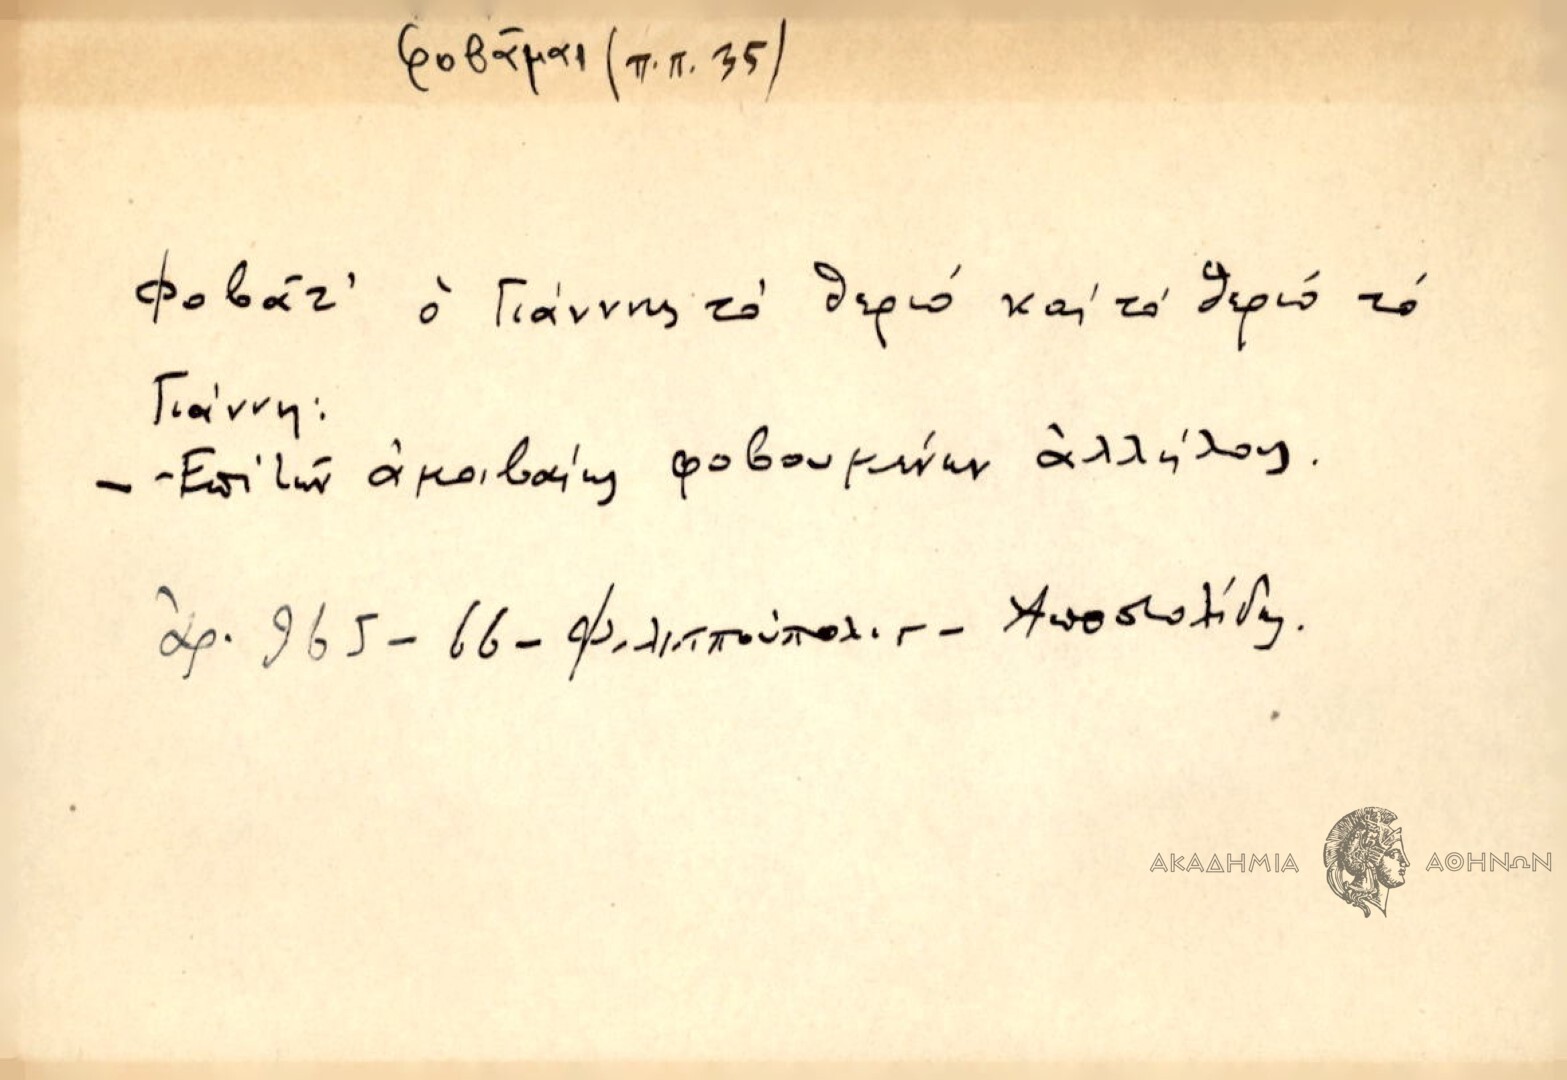 φοβᾶμαι (π.π. 35)
Φοβᾶτ' ὁ Γιάννης τό θεριό καί τό θεριό τό
Γιάννη:
- -Ἐπί τῶν ἀμοιβαίως φοβουμένων ἀλλήλους.
ἀρ. 965 - 66 - Φιλιππούπολις - Ἀποστολίδης.
ΑΚΑΔΗΜΙΑ ΑΘΗΝΩΝ